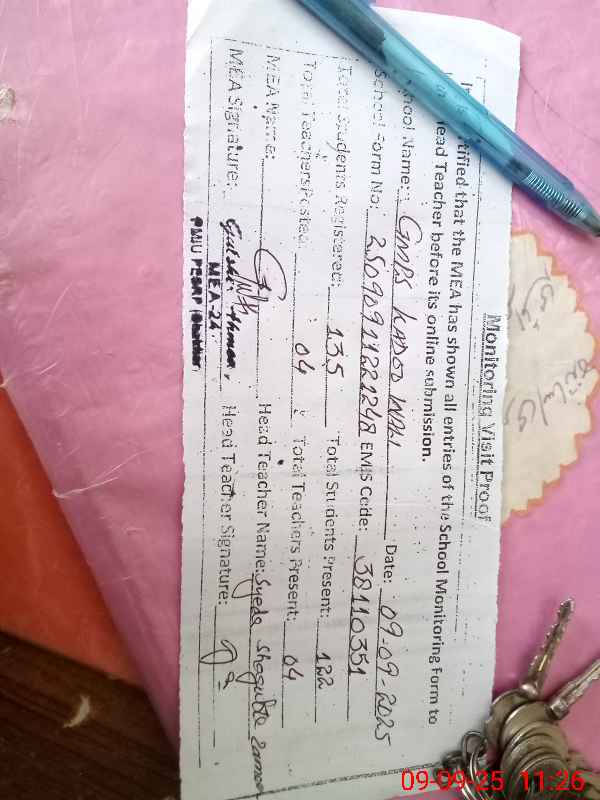 Monitoring Visit Proof
tified that the MEA has shown all entries of the School Monitoring Form to
ead Teacher before its online submission.
hool Name: GMPS KADDO WALI Date: 09-09-2025
School Form No: 25090911221248 EMIS Code: 38110351
Total Students Registered: 135 Total Students Present: 122
Total Teachers Posted: 04 Total Teachers Present: 04
MEA Name: Head Teacher Name: Syeda Shagufta
MEA Signature: Head Teacher Signature:
MEA-24
PMIU PESRP
09-09-25 11:26